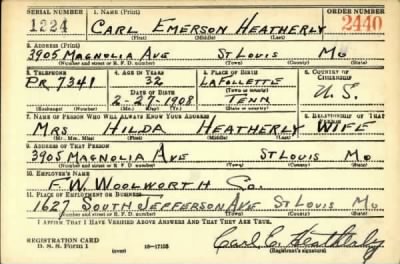 SERIAL NUMBER 1. NAME (Print) ORDER NUMBER
1224 CARL EMERSON HEATHERLY 2440
(First) (Middle) (Last)
2. ADDRESS (Print)
3905 MAGNOLIA AVE ST LOUIS MO
(Number and street or R. F. D. number) (Town) (County) (State)
3. TELEPHONE 4. AGE IN YEARS 5. PLACE OF BIRTH 6. COUNTRY OF CITIZENSHIP
PR 7341 32 LAFOLLETTE
DATE OF BIRTH (Town or county)
2-29-1908 TENN U.S.
(Exchange) (Number) (Mo.) (Day) (Yr.) (State or country)
7. NAME OF PERSON WHO WILL ALWAYS KNOW YOUR ADDRESS 8. RELATIONSHIP OF THAT PERSON
MRS HILDA HEATHERLY WIFE
(Mr., Mrs., Miss) (First) (Middle) (Last)
9. ADDRESS OF THAT PERSON
3905 MAGNOLIA AVE ST LOUIS MO
(Number and street or R. F. D. number) (Town) (County) (State)
10. EMPLOYER'S NAME
F. W. WOOLWORTH CO.
11. PLACE OF EMPLOYMENT OR BUSINESS
1627 SOUTH JEFFERSON AVE ST LOUIS MO
(Number and street or R. F. D. number) (Town) (County) (State)
I AFFIRM THAT I HAVE VERIFIED ABOVE ANSWERS AND THAT THEY ARE TRUE.
REGISTRATION CARD
D. S. S. FORM 1 (over) 16-17105 Carl E. Heatherly
(Registrant's signature)